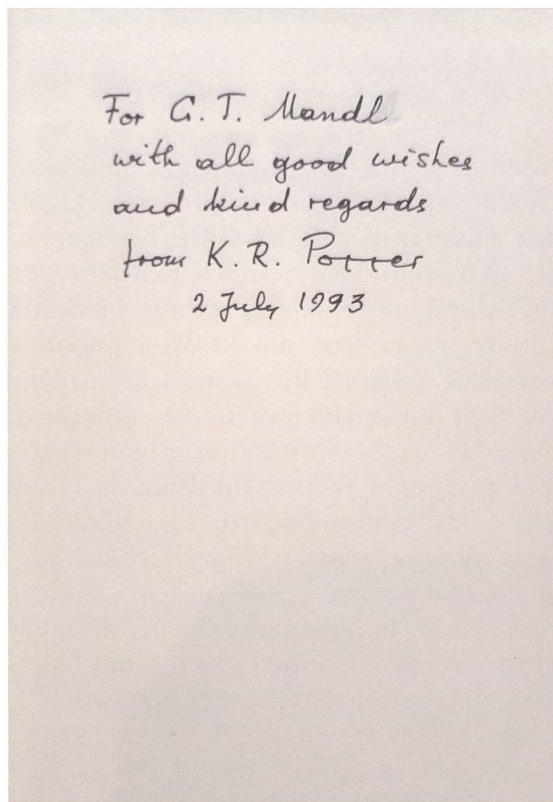 For G. T. Mandl
with all good wishes
and kind regards
from K. R. Popper
2 July 1993